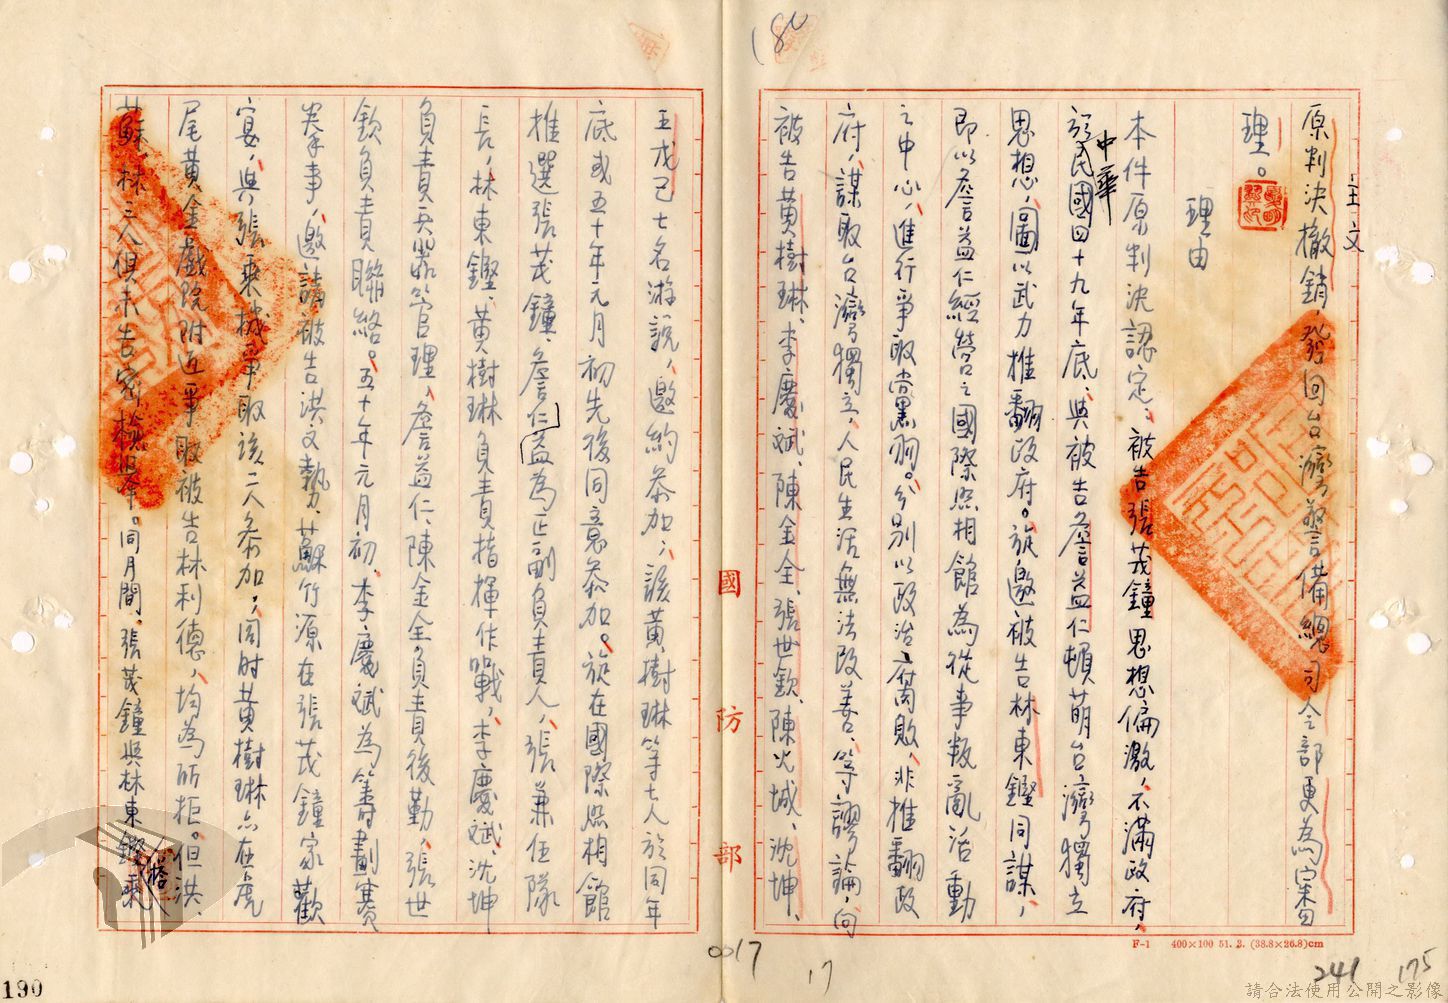 主文
原判決撤銷,發回台灣警備總司令部更為審
理。
理由
本件原判決認定:被告張茂鐘思想偏激,不滿政府,
於中華民國四十九年底,與被告詹益仁頓萌台灣獨立
思想,圖以武力推翻政府。旋邀被告林東鏗同謀,
即以詹益仁經營之國際照相館為從事叛亂活動
之中心,進行爭取黨羽。分別以政治腐敗,非推翻政
府,謀取台灣獨立,人民生活無法改善,等謬論,向
被告黃樹琳、李慶斌、陳金全、張世欽、陳火城、沈坤、
王戊己七名游說,邀約參加,該黃樹琳等七人於同年
底或五十年元月初先後同意參加。旋在國際照相館
推選張茂鐘、詹仁益為正副負責人,張兼任隊
長,林東鏗、黃樹琳負責指揮作戰,李慶斌、沈坤
負責兵器管理,詹益仁、陳金全負責後勤,張世
欽負責聯絡。五十年元月初,李慶斌為籌劃賽
拳事,邀請被告洪文勢、蘇竹源在張茂鐘家歡
宴,與張乘機爭取該二人參加,同時黃樹琳亦在虎
尾黃金戲院附近爭取被告林利德,均為所拒。但洪、
蘇、林三人俱未告密檢舉。同月間,張茂鐘與林東鏗乘
國防部
F-1 400×100 51. 2. (38.8×26.8)cm
0017
17
241
175
190
請合法使用公開之影像